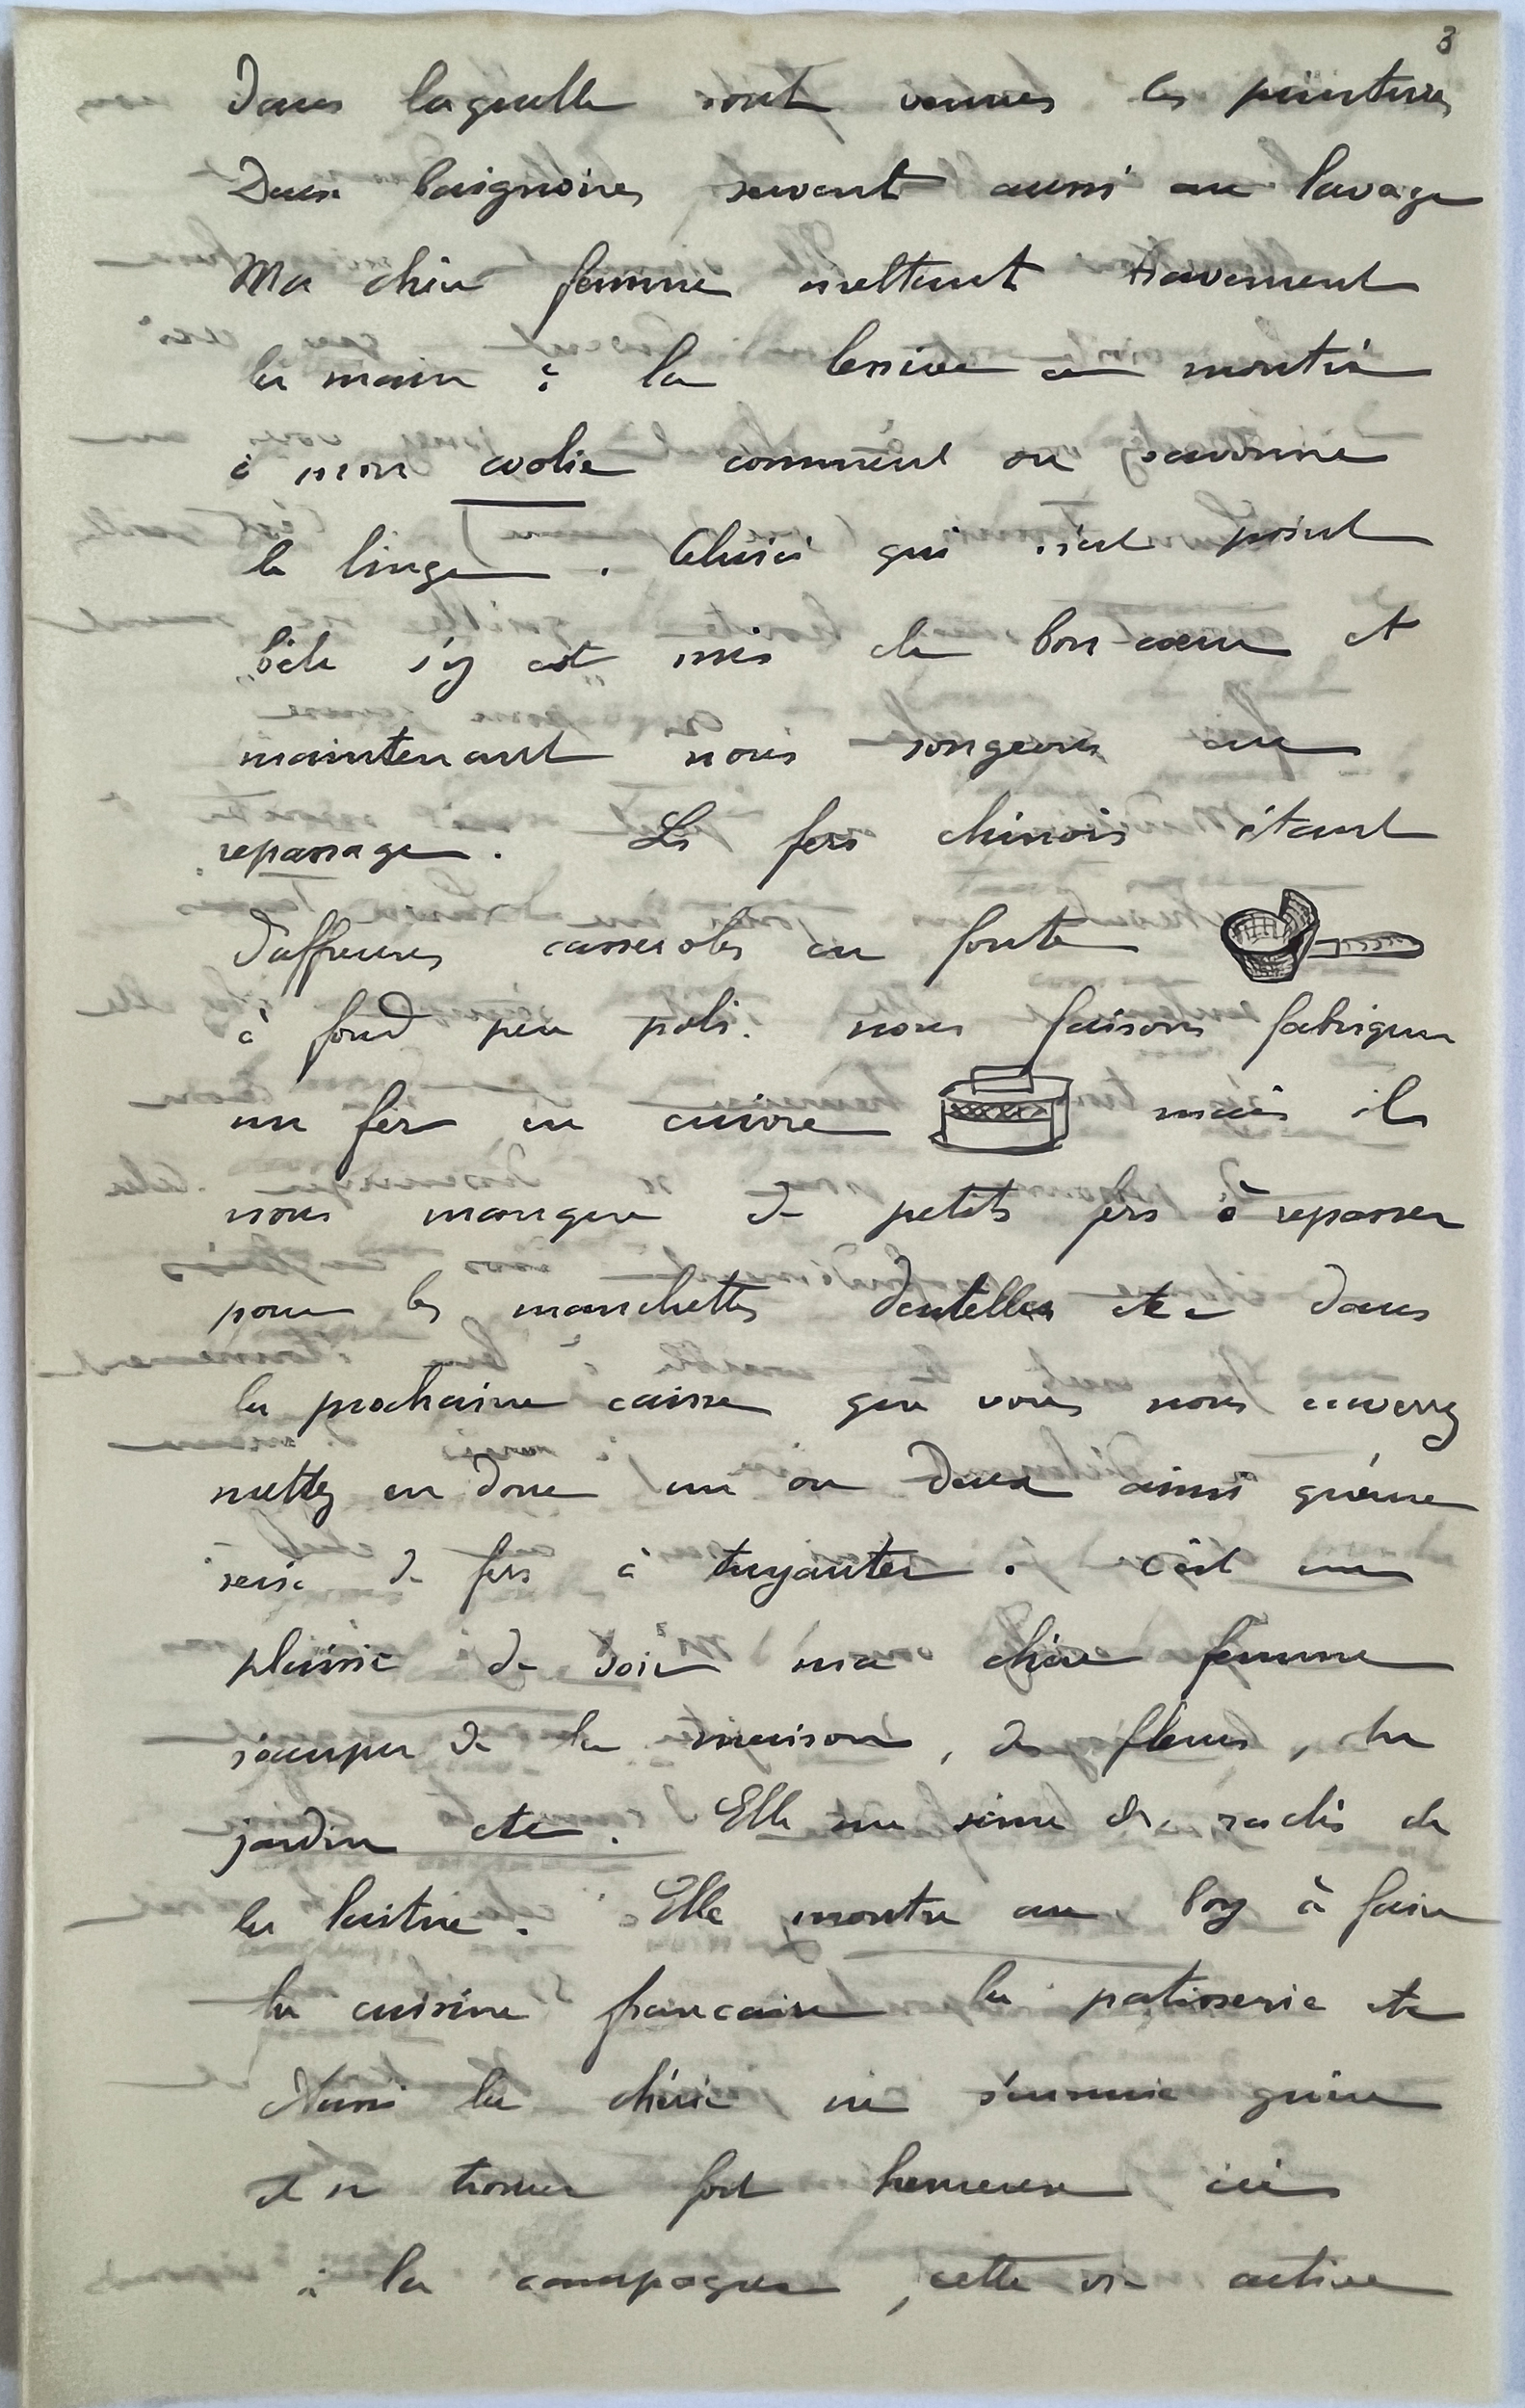 3
dans laquelle sont venues les peintures
Deux baignoires servent aussi au lavage
Ma chère femme mettant bravement
la main à la lessive a montré
à mon coolie comment on savonne
le linge. Celui ci qui n'est point
bête s'y est mis de bon cœur et
maintenant nous songeons au
repassage. Les fers chinois étant
d'affreuses casseroles en fonte
à fond peu poli. nous faisons fabriquer
un fer en cuivre mais il
nous manque de petits fers à repasser
pour les manchettes dentelles etc dans
la prochaine caisse que vous nous enverrez
mettez en donc un ou deux ainsi qu'une
série de fers à tuyauter. c'est un
plaisir de voir ma chère femme
s'occuper de la maison, des fleurs, du
jardin etc. Elle me sème des radis de
la laitue. Elle montre au boy à faire
la cuisine francaise la patisserie etc
Aussi la chérie ne s'ennuie guère
et se trouve fort heureuse ici
à la campagne, cette vie active